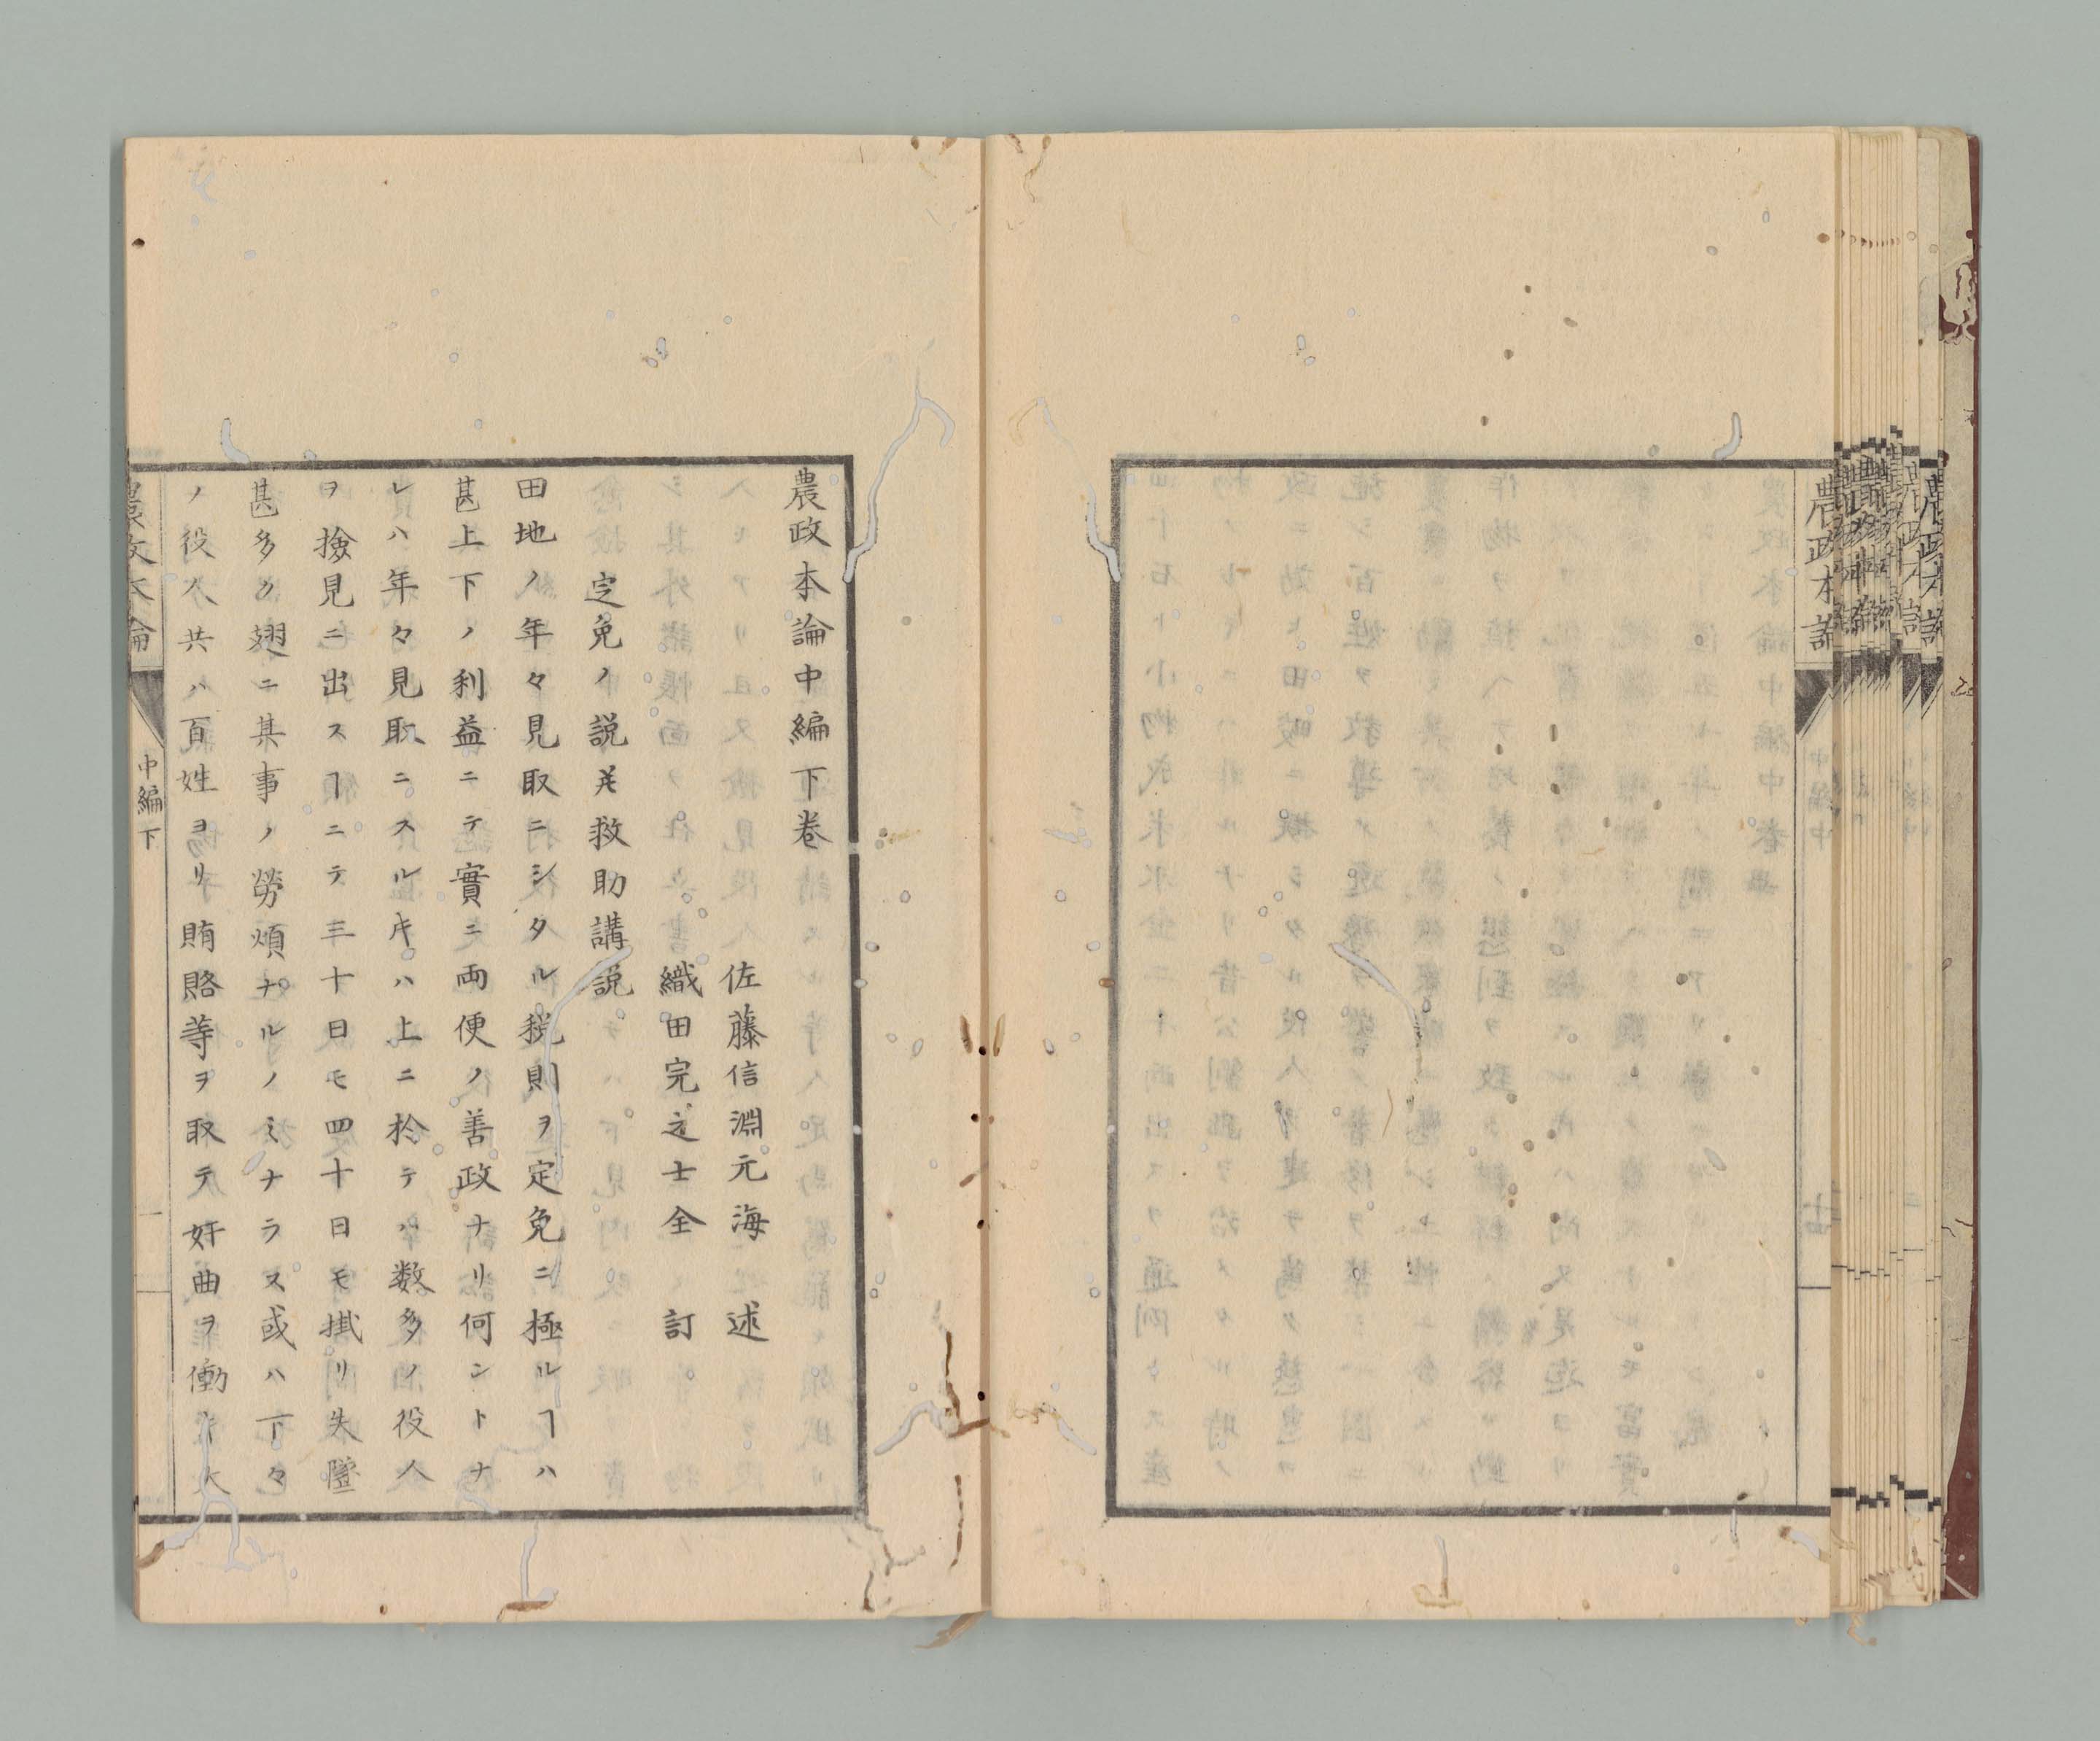 農政本論
農政本論中編下卷
佐藤信淵元海 述
織田完之士全 訂
定免ノ説幷救助講説
田地ノ年々見取ニシタル税則ヲ定免ニ極ルヿハ
甚上下ノ利益ニテ實ニ両便ノ善政ナリ何ントナ
レハ年々見取ニスルキハ上ニ於テハ数多ノ役人
ヲ撿見ニ出スヿニテ三十日モ四十日モ掛リ失墜
甚多ク翅ニ其事ノ勞煩ナルノミナラス或ハ下々
ノ役人共ハ百姓ヨリ賄賂等ヲ取テ奸曲ヲ働キ大
農政本論
中編下